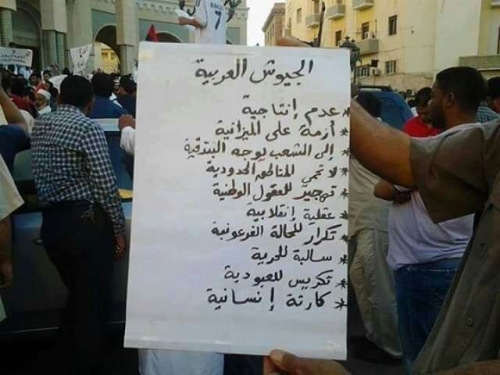 الجيوش العربية
* عدم إنتاجية
* أزمة على الميزانية
* إلى الشعب يوجه البندقية
* لا تحمي المناطق الحدودية
* تهجير للعقول الوطنية
* عقلية إنقلابية
* تكرار للحالة الفرعونية
* سالبة للحرية
* تكريس للعبودية
* كارثة إنسانية